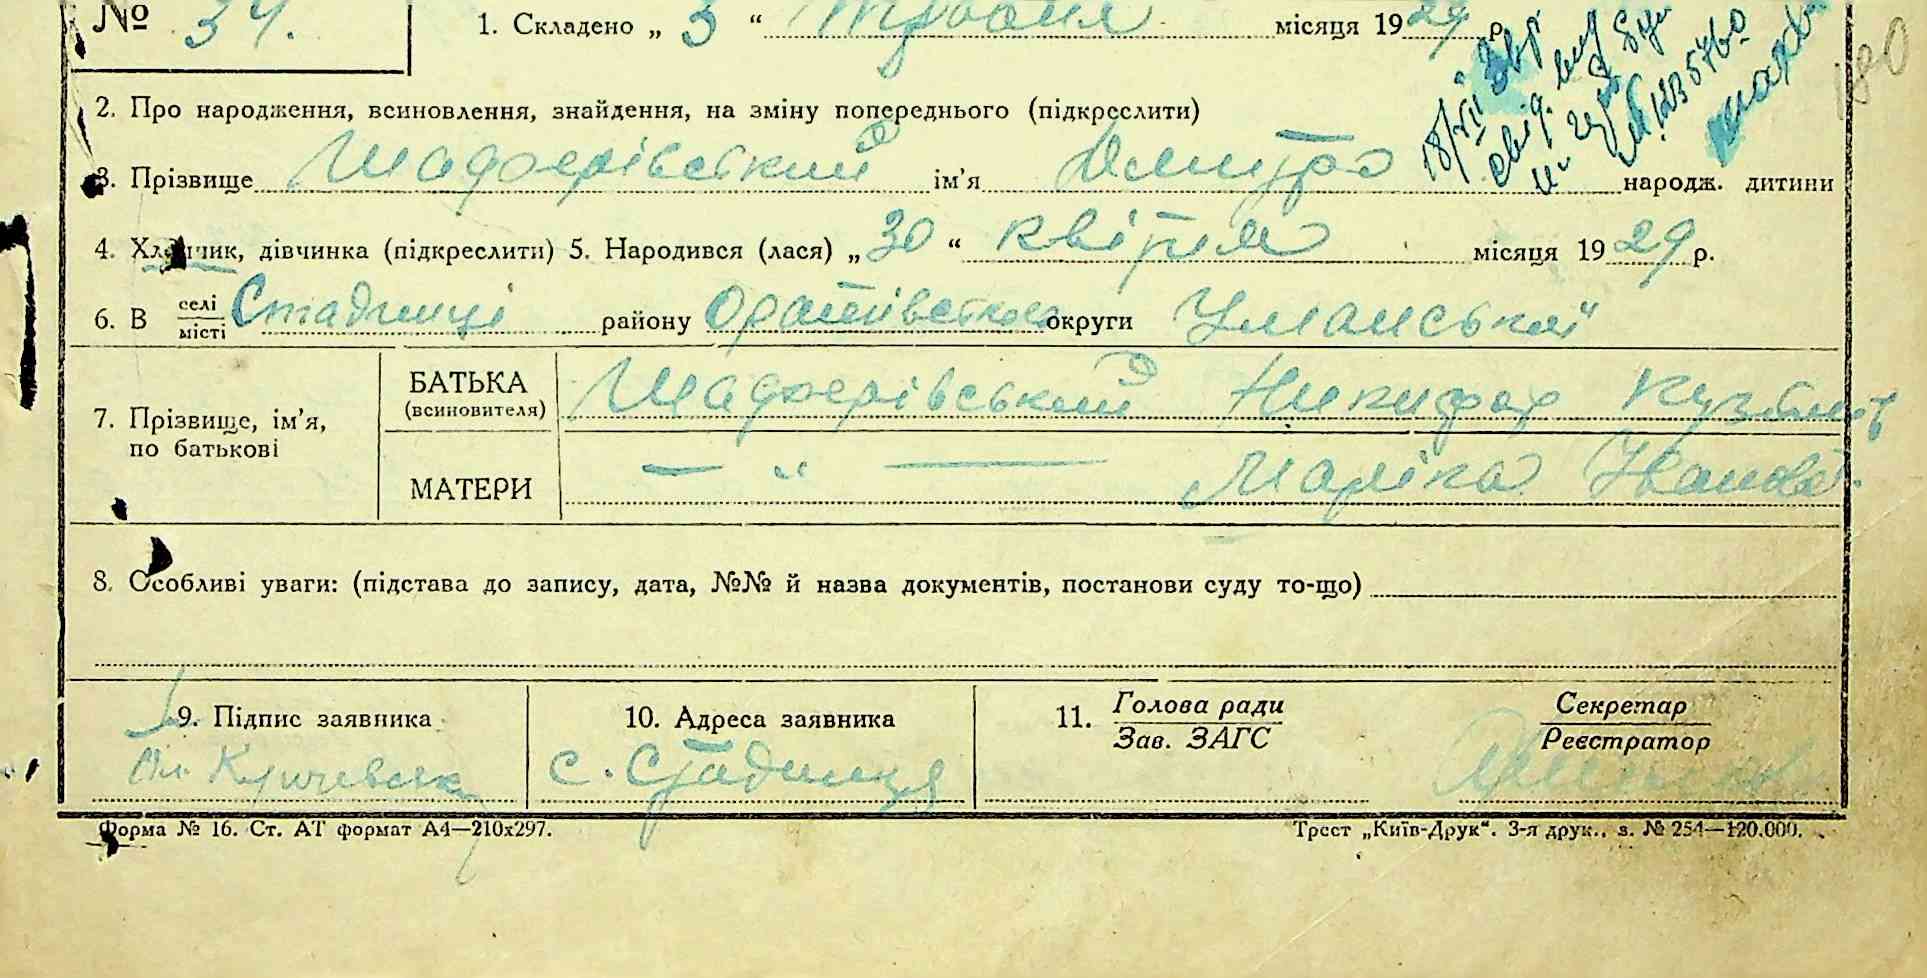 № 34. 1. Складено „ 3 “ Травня місяця 1929 р.
180
2. Про народження, всиновлення, знайдення, на зміну попереднього (підкреслити)
3. Прізвище Шадрерівський ім’я Дмитро народж. дитини
4. Хлопчик, дівчинка (підкреслити) 5. Народився (лася) „ 30 “ квітня місяця 1929 р.
6. В селі/місті Стадниці району Оратівського округи Уманської
7. Прізвище, ім’я, по батькові
БАТЬКА (всиновителя) Шадрерівський Никифор Кузьмів
МАТЕРИ — „ — Маріка Іванов.
8. Особливі уваги: (підстава до запису, дата, №№ й назва документів, постанови суду то-що)
9. Підпис заявника 10. Адреса заявника 11. Голова ради/Зав. ЗАГС Секретар/Реєстратор
с. Стадниця
Форма № 16. Ст. АТ формат А4—210х297. Трест „Київ-Друк“. 3-я друк., з. № 254—120.000.